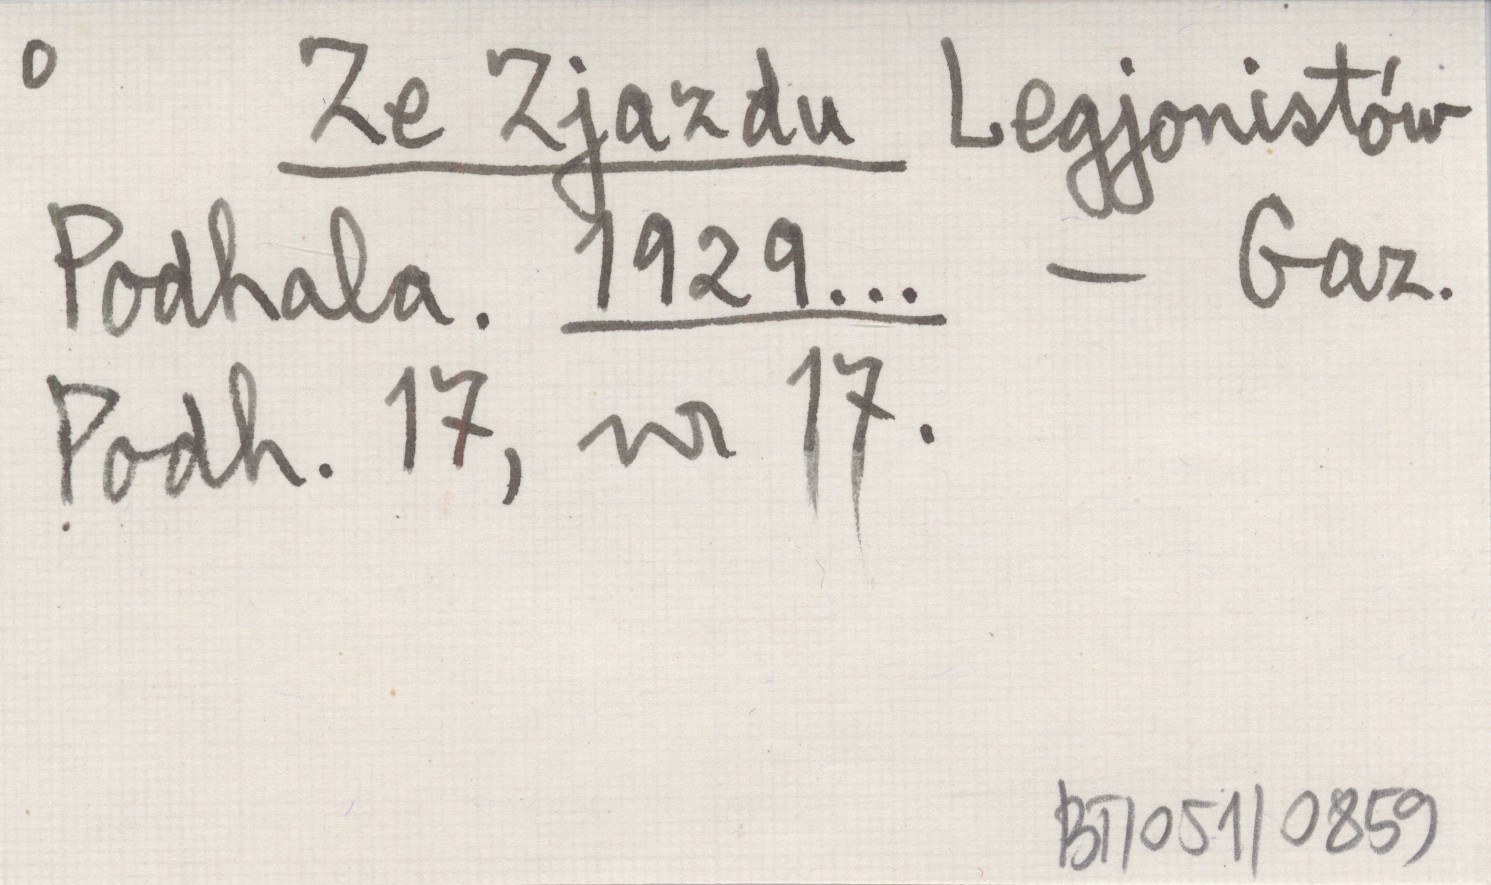 o Ze Zjazdu Legjonistów
Podhala. 1929... — Gaz.
Podh. 17, nr 17.
BT/051/0859